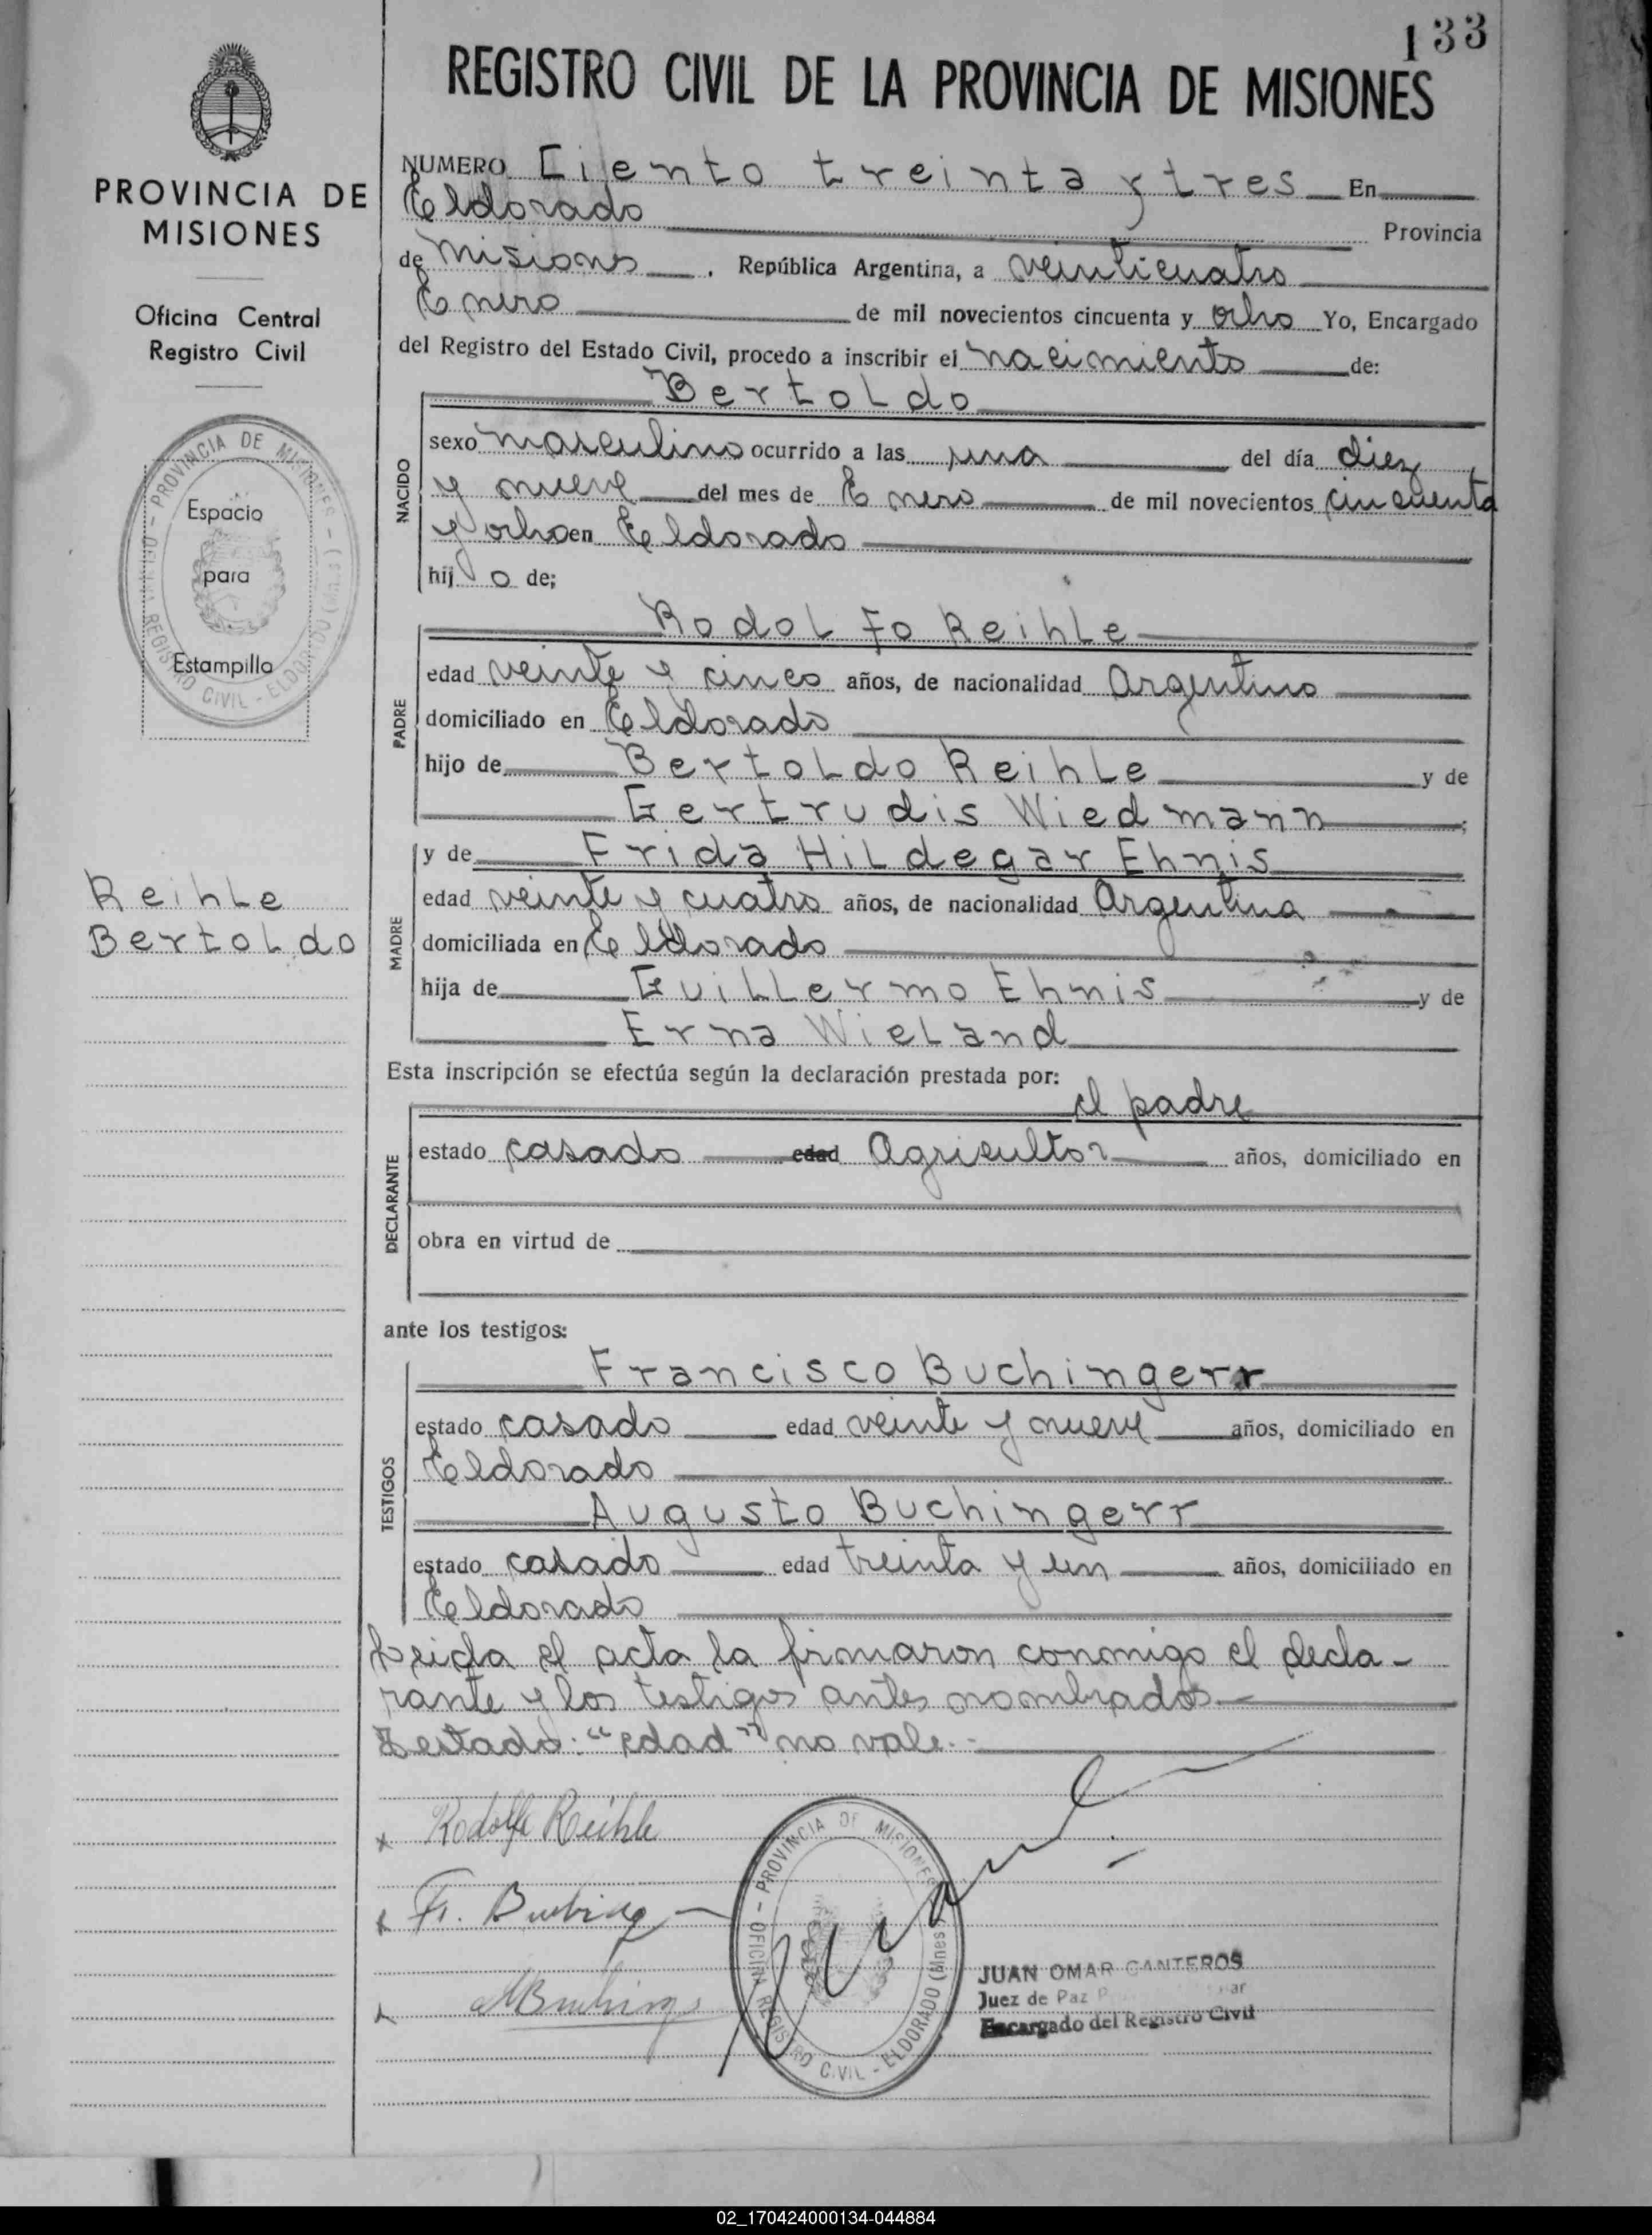 133
REGISTRO CIVIL DE LA PROVINCIA DE MISIONES
PROVINCIA DE
MISIONES
Oficina Central
Registro Civil
Espacio
para
Estampilla
Reihle
Bertoldo
NUMERO Ciento treinta y tres En
Eldorado Provincia
de Misiones, República Argentina, a veinticuatro
Enero de mil novecientos cincuenta y ocho Yo, Encargado
del Registro del Estado Civil, procedo a inscribir el nacimiento de:
Bertoldo
NACIDO
sexo masculino ocurrido a las una del día diez
y nueve del mes de Enero de mil novecientos cincuenta
y ocho en Eldorado
hijo de;
Rodolfo Reihle
PADRE
edad veinte y cinco años, de nacionalidad Argentino
domiciliado en Eldorado
hijo de Bertoldo Reihle y de
Gertrudis Wiedmann;
y de Frida Hildegar Ehnis
MADRE
edad veinte y cuatro años, de nacionalidad Argentina
domiciliada en Eldorado
hija de Guillermo Ehnis y de
Erna Wieland
Esta inscripción se efectúa según la declaración prestada por:
el padre
DECLARANTE
estado casado edad Agricultor años, domiciliado en
obra en virtud de
ante los testigos:
Francisco Buchingerr
TESTIGOS
estado casado edad veinte y nueve años, domiciliado en
Eldorado
Augusto Buchingerr
estado casado edad treinta y un años, domiciliado en
Eldorado
Leida el acta la firmaron conmigo el decla-
rante y los testigos antes nombrados.-
Testado: "edad" no vale.-
x Rodolfo Reihle
x Fr.
x
PROVINCIA DE MISIONES - OFICINA REGISTRO CIVIL - ELDORADO (Mnes
JUAN OMAR CANTEROS
Juez de Paz
Encargado del Registro Civil
02_170424000134-044884